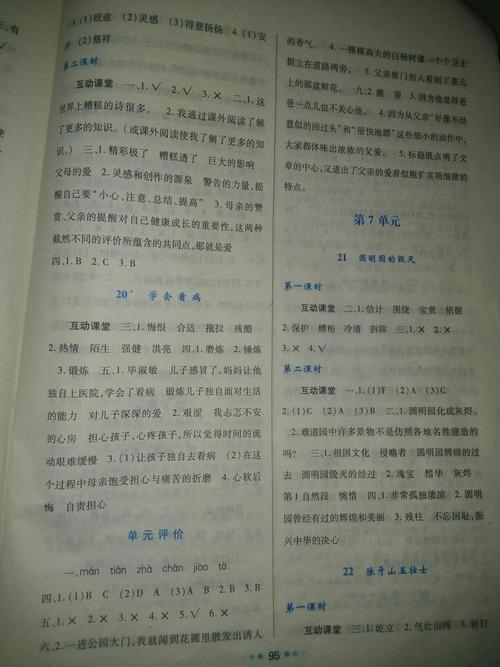 3. (1)歧途 (2)灵感 (3)得意扬扬 4. (1)安
详 (2)慈祥
第二课时
互动课堂 一、1.√ 2.√ 3.× 二、1.这
世界上糟糕的诗很多。 2.我通过课外阅读了解
了更多的知识。(或课外阅读使我了解了更多的知
识。) 三、1.精彩极了 糟糕透了 巨大的影响
父母的爱 2.灵感和创作的源泉 警告的力量,提
醒自己要“小心、注意、总结、提高” 3.母亲的赞
赏、父亲的提醒对自己健康成长的重要性,这两种
截然不同的评价所蕴含的共同点,那就是爱
四、1.B 2.C 3.B
20* 学会看病
互动课堂 三、1.悔恨 合适 拖拉 残酷
2.热情 陌生 强健 洪亮 四、1.磨炼 2.锤炼
3.锻炼 五、1.毕淑敏 儿子感冒了,妈妈让他
独自上医院,学会了看病 锻炼儿子独自面对生活
的能力 对儿子深深的爱 2.艰涩 我忐忑不安
的心房 担心孩子,心疼孩子,所以觉得时间的流
动艰难缓慢 3.(1)让孩子独自去看病 (2)在这
个过程中母亲饱受担心与痛苦的折磨 4.心软后
悔 自责担心
单元评价
一、mán tiān zhà chàn jiào tà
四、1.(1)B (2)D (3)A (4)A 2.B 3.B
五、1.× 2.× 3.× 4.× 5.√ 6.×
六、2.一进公园大门,我就闻到花圃里散发出诱人
的香气。 4.一棵棵高大的白杨树像一个个卫士
挺立在道路两旁。 5.父亲推门而入看到了茶几
上的那盆鲜花。 九、2.撒 望 3.因为他觉得爸
爸一点儿也不关心他。 4.因为从父亲“好像不经
意似的回过头”和“很快地瞟”这些细小的动作中,
大家都体味出浓浓的父爱。 5.标题既点明了文
章的中心,又道出了父亲的爱看似粗犷实用细微的
特点。
第7单元
21 圆明园的毁灭
第一课时
互动课堂 二、1.估计 围绕 宝贵 依据
2.保护 糟粕 冷清 拆除 三、1.× 2.×
3.× 4.√
第二课时
互动课堂 一、1.(1)F (2)A (3)C
2.(1)C (2)A (3)B 二、1.圆明园化成灰烬。
2.难道园中许多景物不是仿照各地名胜建造的
吗? 三、1.祖国文化 侵略者 圆明园辉煌的过
去 圆明园毁灭的经过 2.瑰宝 精华 灰烬
第1自然段 惋惜 四、1.非常孤独凄凉 2.圆明
园曾经有过的辉煌和美丽 3.残柱 不忘国耻,振
兴中华的决心
22 狼牙山五壮士
第一课时
互动课堂 三、1.屹立 2.气壮山河 3.斩钉
95